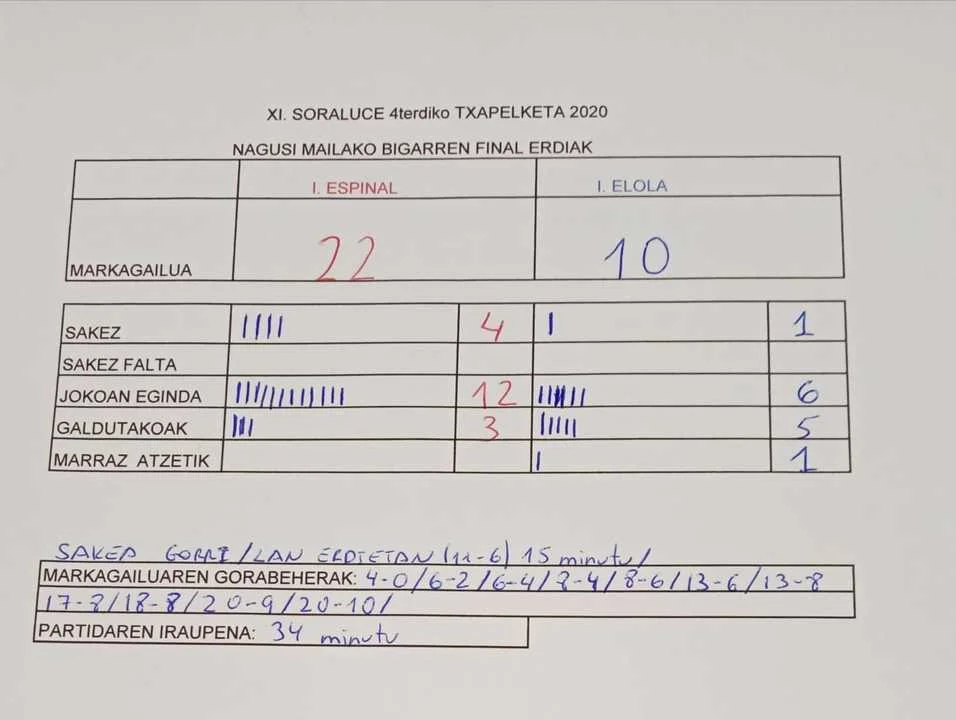 XI. SORALUCE 4terdiko TXAPELKETA 2020
NAGUSI MAILAKO BIGARREN FINAL ERDIAK
I. ESPINAL I. ELOLA
MARKAGAILUA 22 10
SAKEZ 4 1
SAKEZ FALTA
JOKOAN EGINDA 12 6
GALDUTAKOAK 3 5
MARRAZ ATZETIK 1
SAKEA GORRI/LAN ERDIETAN (11-6) 15 minutu/
MARKAGAILUAREN GORABEHERAK: 4-0/6-2/6-4/8-4/8-6/13-6/13-8
17-8/18-8/20-9/20-10/
PARTIDAREN IRAUPENA: 34 minutu